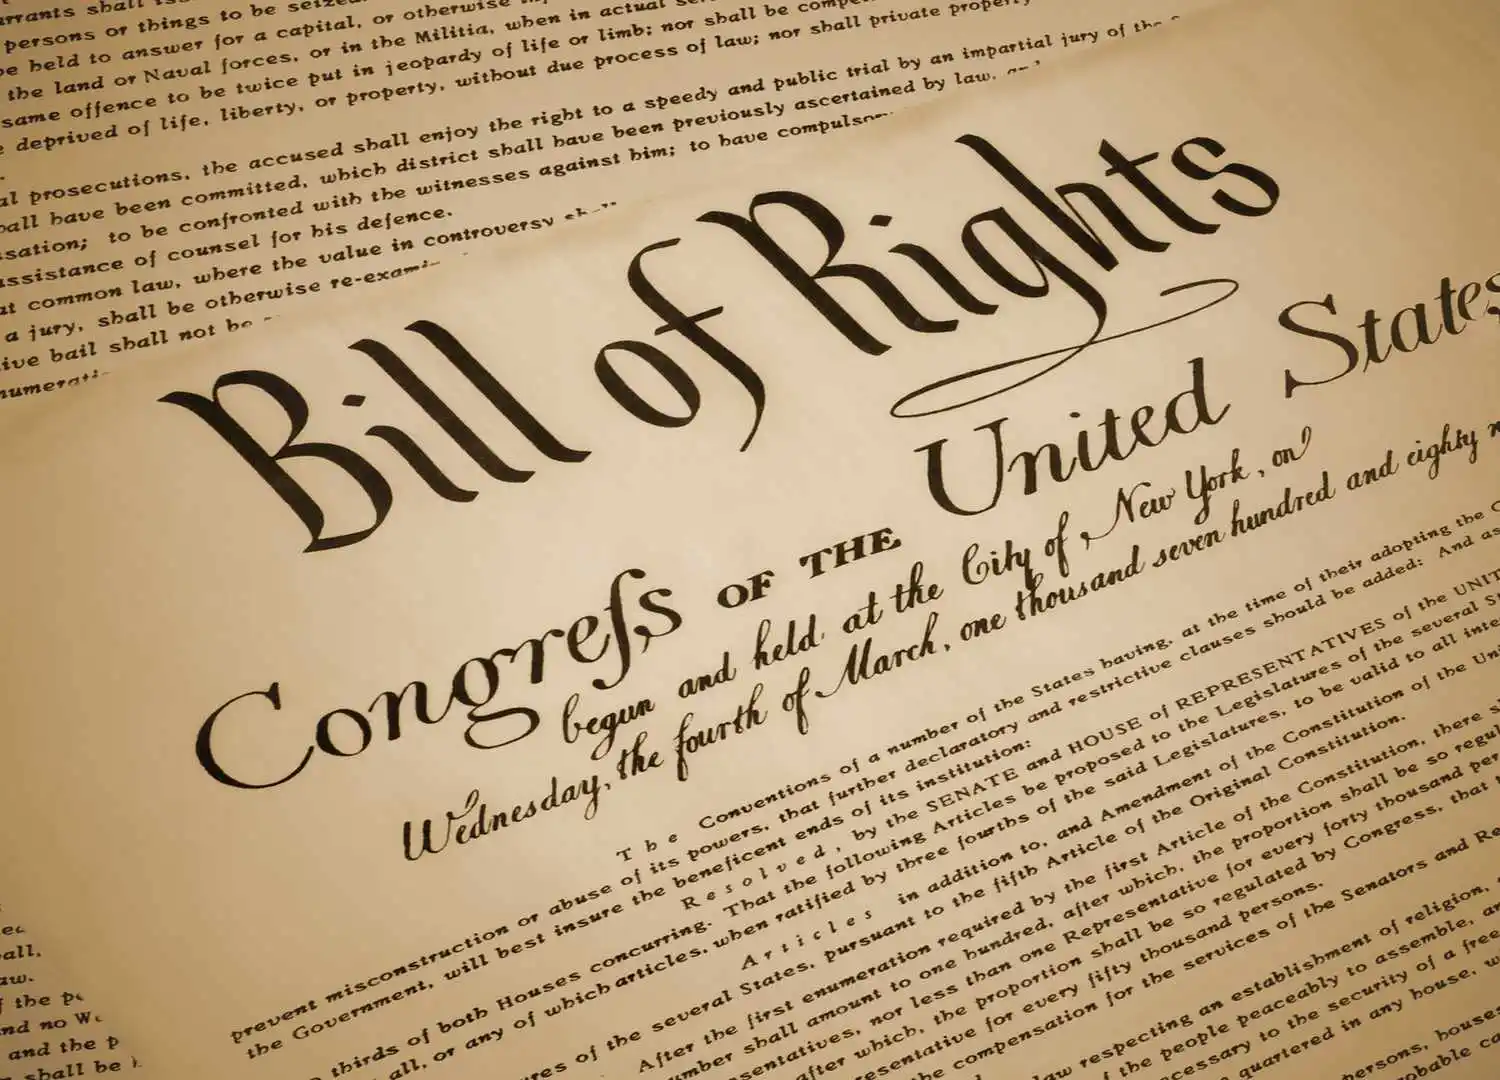 arrants shall
persons or things to be seized
be held to answer for a capital, or otherwise
the land or Naval forces, or in the Militia, when in actual
same offence to be twice put in jeopardy of life or limb; nor shall be
deprived of life, liberty, or property, without due process of law; nor shall private property
al prosecutions, the accused shall enjoy the right to a speedy and public trial by an impartial jury of the
hall have been committed, which district shall have been previously ascertained by law, and
sation; to be confronted with the witnesses against him; to have compulsor
assistance of counsel for his defence.
at common law, where the value in controversy shall
a jury, shall be otherwise re-exami
ive bail shall not be
numerati
Bill of Rights
Congreſs OF THE United States
begun and held at the City of New York, on
Wednesday, the fourth of March, one thousand seven hundred and eighty n
The Conventions of a number of the States having, at the time of their adopting the C
prevent misconstruction or abuse of its powers, that further declaratory and restrictive clauses should be added: And as
the Government, will best insure the beneficent ends of its institution:
Resolved, by the SENATE and HOUSE of REPRESENTATIVES of the UNIT
thirds of both Houses concurring. That the following Articles be proposed to the Legislatures of the several St
all, or any of which articles, when ratified by three fourths of the said Legislatures, to be valid to all inte
Articles in addition to, and Amendment of the Constitution of the Uni
ures of the several States, pursuant to the fifth Article of the Original Constitution.
After the first enumeration required by the first Article of the Constitution, there s
umber shall amount to one hundred, after which, the proportion shall be so regul
sentatives, nor less than one Representative for every forty thousand per
after which, the proportion shall be so regulated by Congress, that t
esentative for every fifty thousand persons.
the compensation for the services of the Senators and Re
law respecting an establishment of religion,
of the people peaceably to assemble,
cessary to the security of a free
quartered in any house,
ersons, houses
robable ca
all,
aw.
the
nd no
and the p
shall be